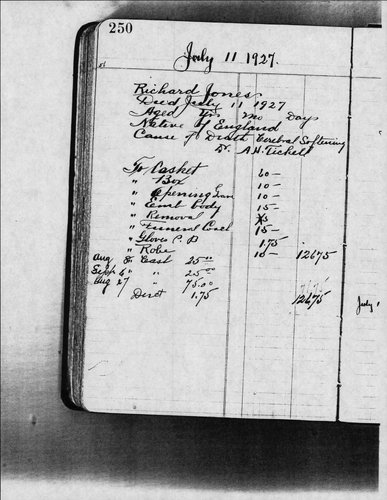 250
July 11 1927.
Richard Jones
Died July 11 1927
Aged Yrs mo Days
Native of England
Cause of Death Cerebral Softening
Dr. A.H. Tickell
To Casket 60-
" Box 10-
" Opening 10-
" Embl body 15-
" Removal
" Funeral Coach 15-
" Gloves P. B 1.75
" Robe 10- 126.75
Aug 8 Cash 25.00
Sept 6 " " 25.00
Aug 27 " 75.00
1.75 126.75
July 1